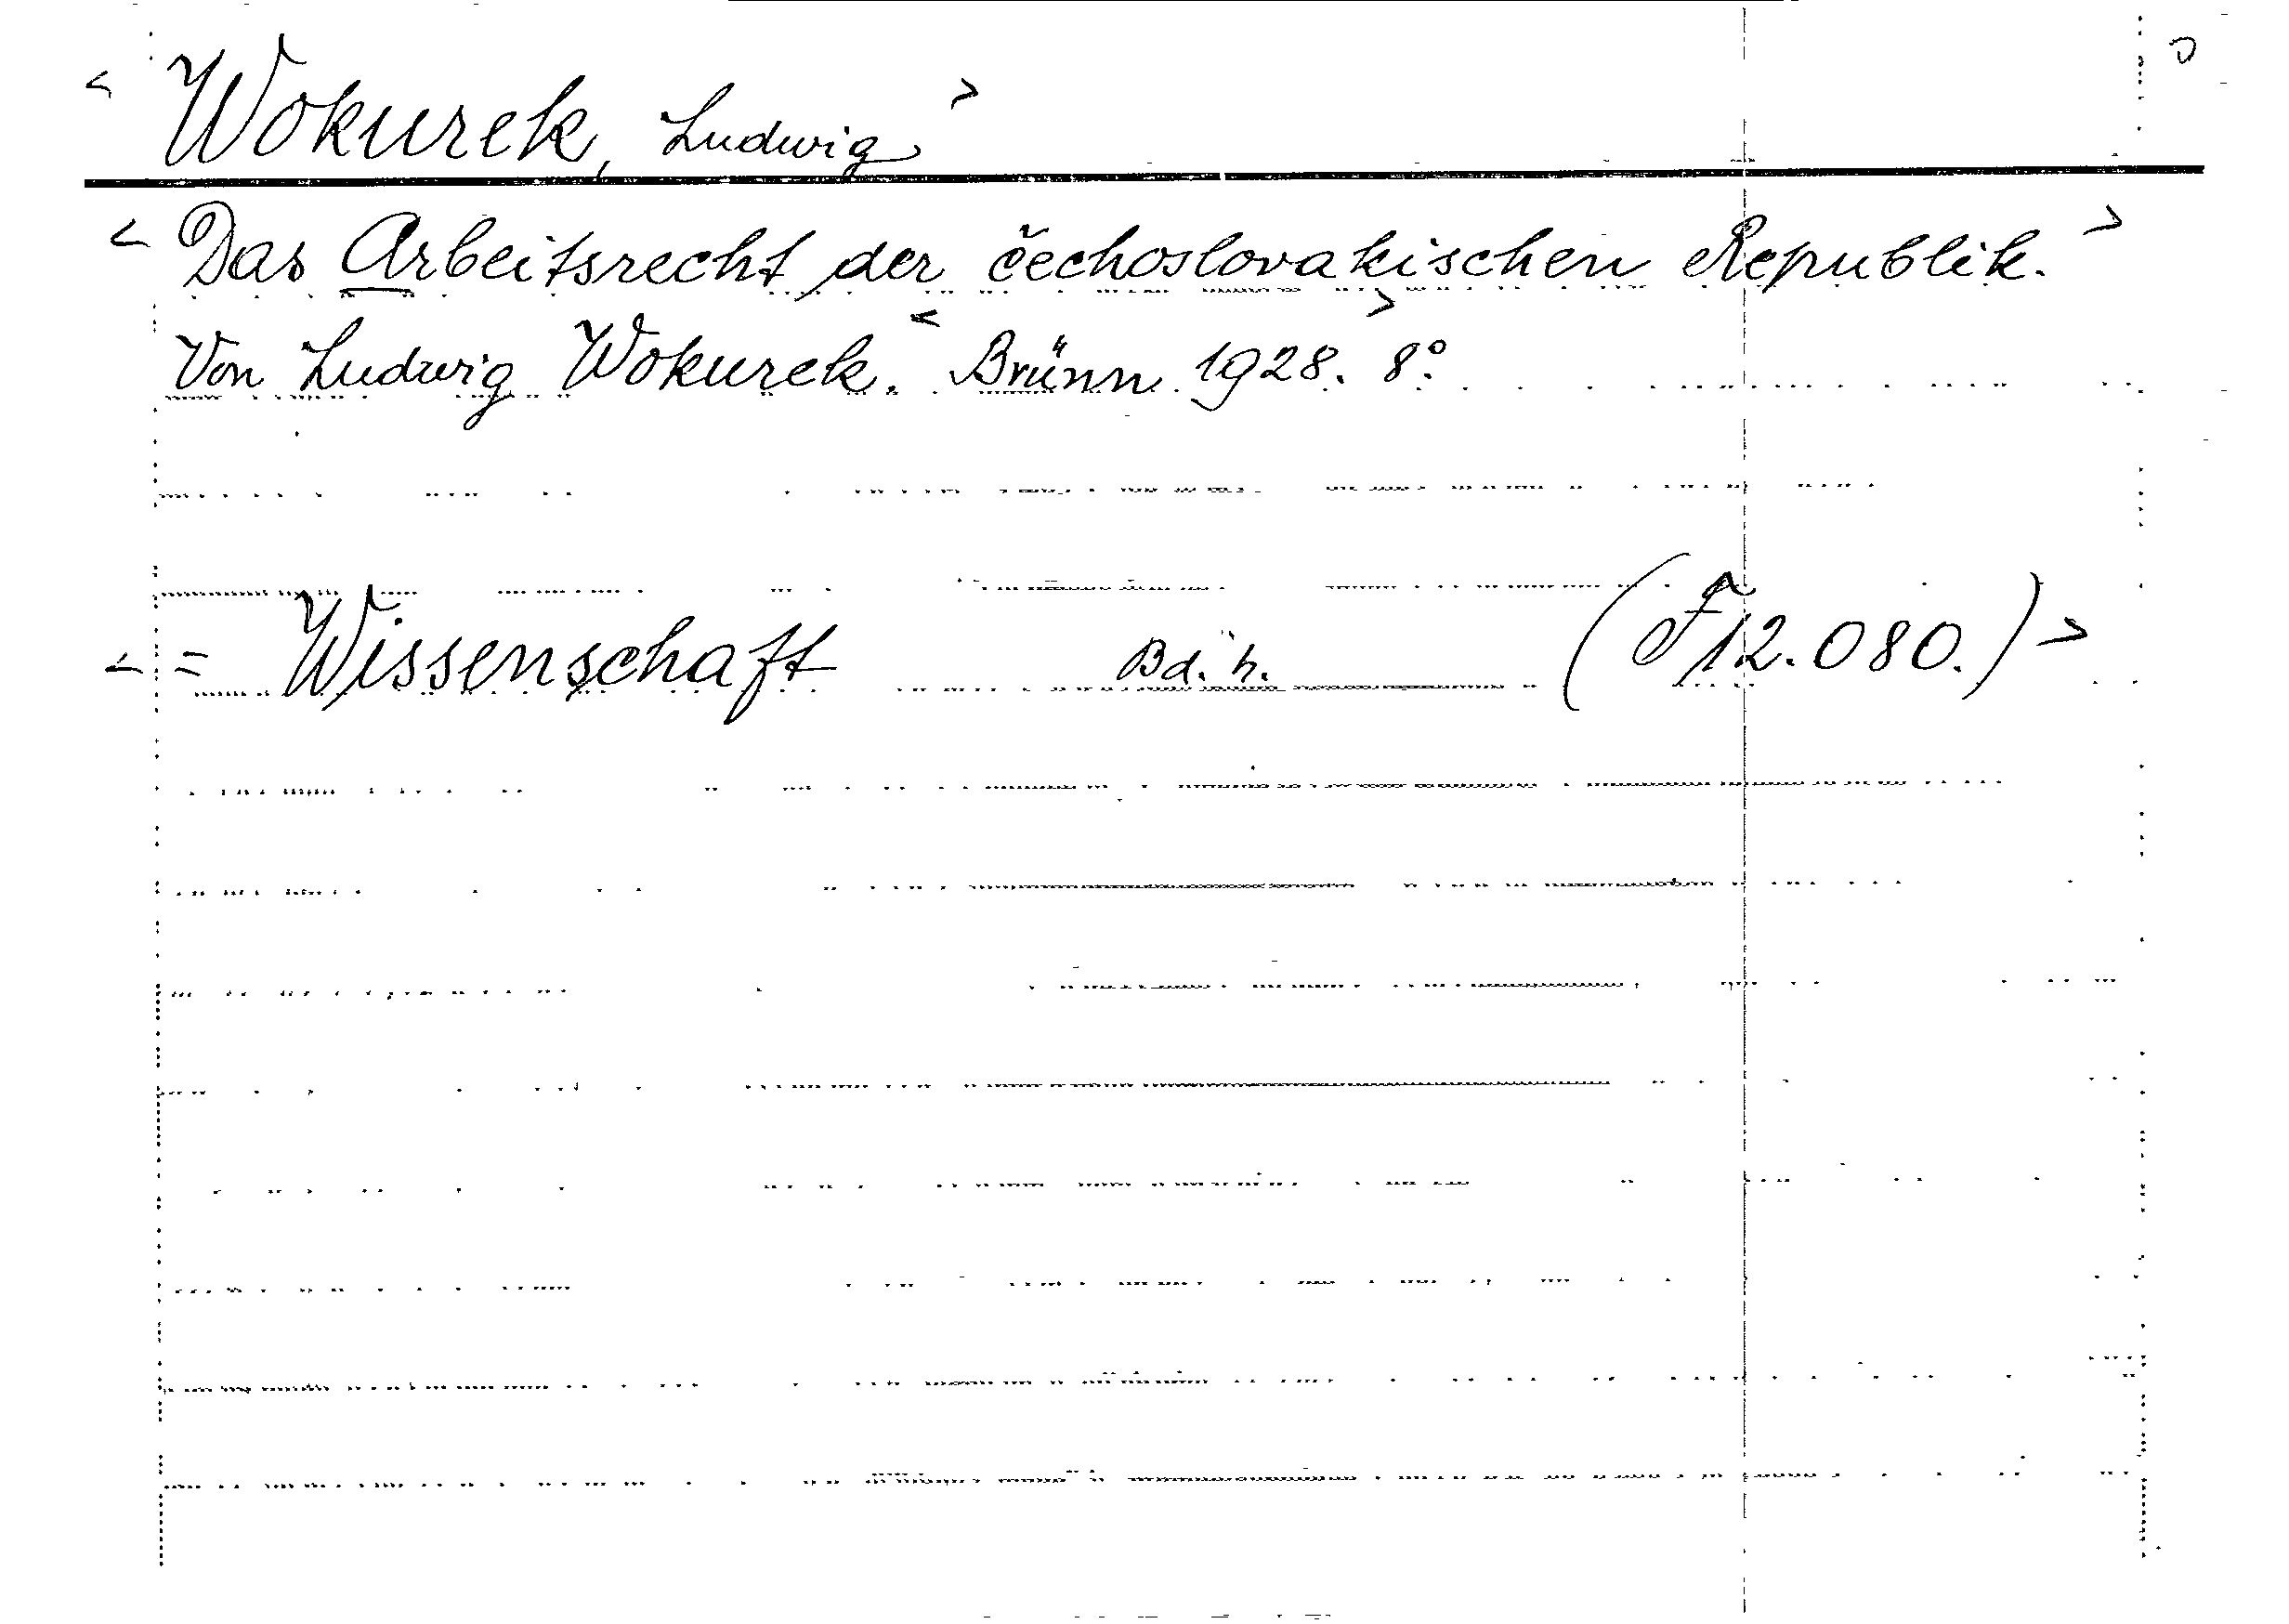 < Wokurek, Ludwig >
< Das Arbeitsrecht der čechoslovakischen Republik. >
Von Ludwig Wokurek. < Brünn 1928. > 8°.
< = Wissenschaft Bd. h. (F 12.080.) >